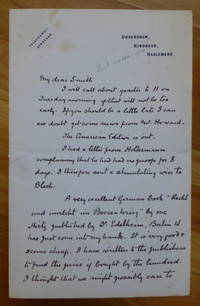 UNDERSHAW,
HINDHEAD,
HASLEMERE.
My dear Smith
I will call about quarter to 11 on
Tuesday morning if that will not be too
early. If you should be a little late I can
no doubt get some news from Mr Howard.
The American Edition is out.
I had a letter from Holtermann
complaining that he had had no proofs for 8
days. I therefore sent a stimulating wire to
Bloch.
A very excellent German book "Recht
und Unrecht im Burenkrieg" by one
Hertz published by Dr Edelheim, Berlin W
has just come into my hands. It is very good &
seems cheap. I have written to the publishers
to find the price if bought by the hundred.
I thought that we might possibly care to